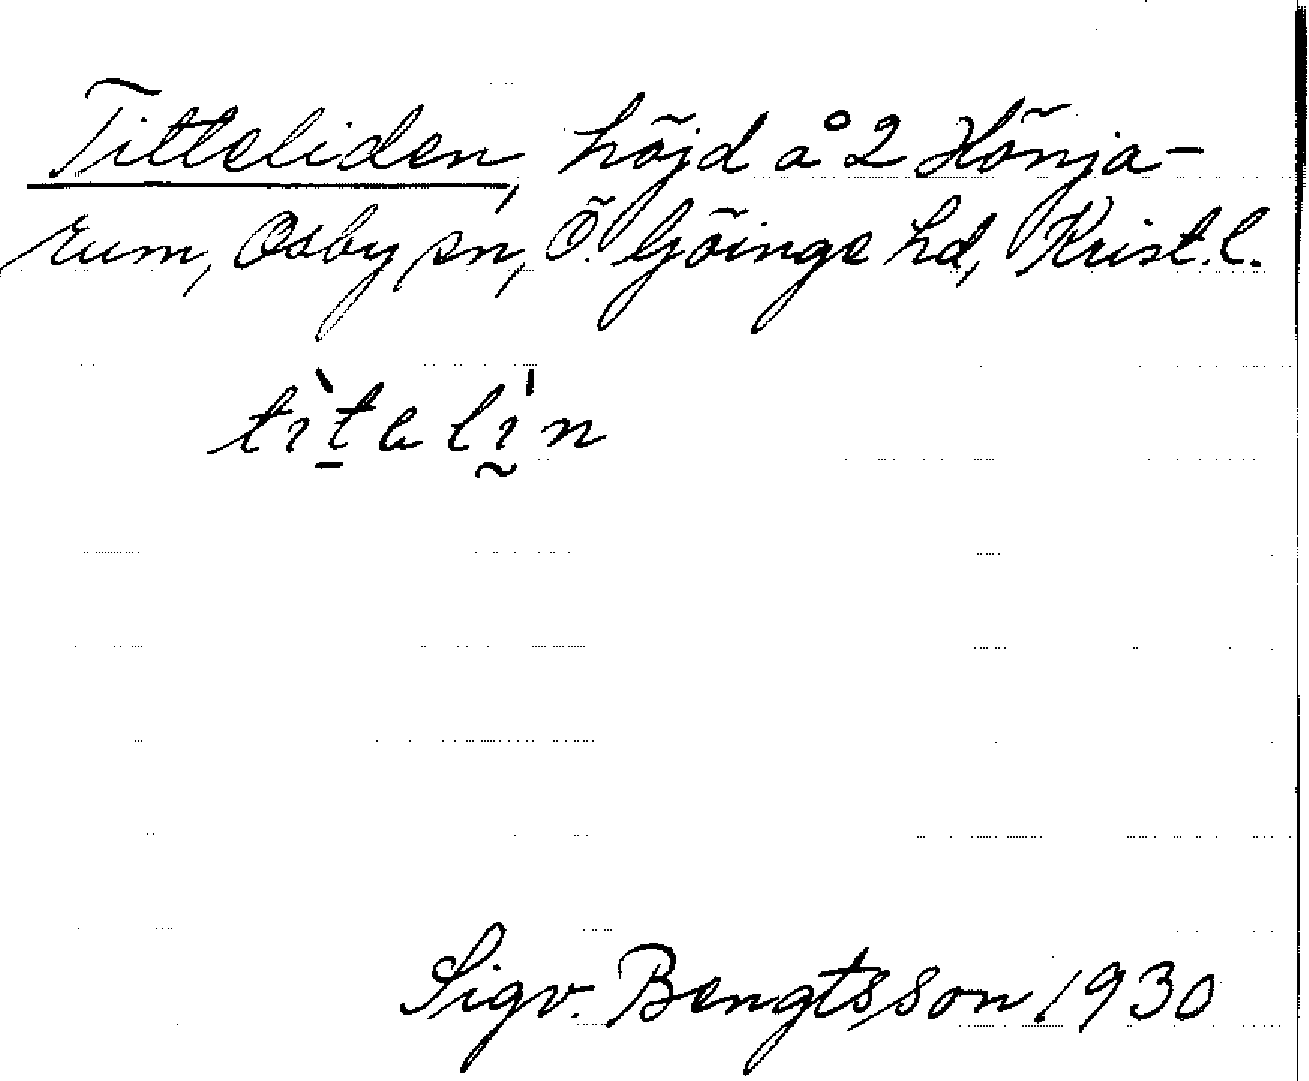 Titteliden, höjd å 2 Hönja-
rum, Osby sn, Ö. Göinge hd, Krist. l.
tìtalı̰́n
Sigv. Bengtsson 1930